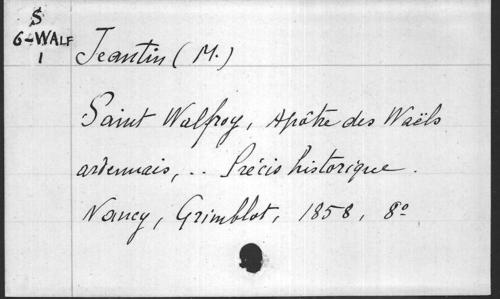 S
6-WALF
1
Jeantin (M.)
Saint Walfroy, Apôtre des Waëls
ardennais, .. Précis historique.
Nancy, Grimblot, 1858, 8º